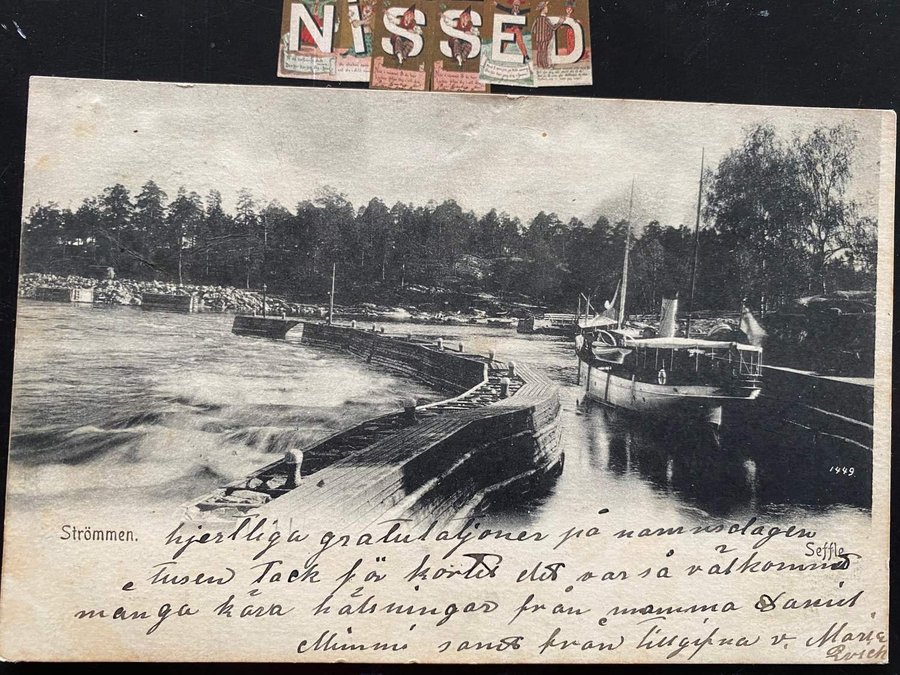 NISSED
1449
Strömmen.
hjertliga gratulatjoner på namnsdagen
Seffle
Tusen tack för kortet det var så välkommet
många kära hälsningar från mamma Daniel
Mimmi samt från tillgifna v. Marie